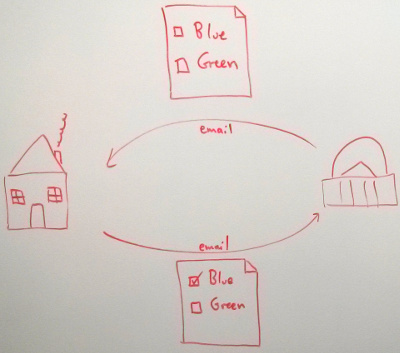 Blue
Green
email
email
Blue
Green